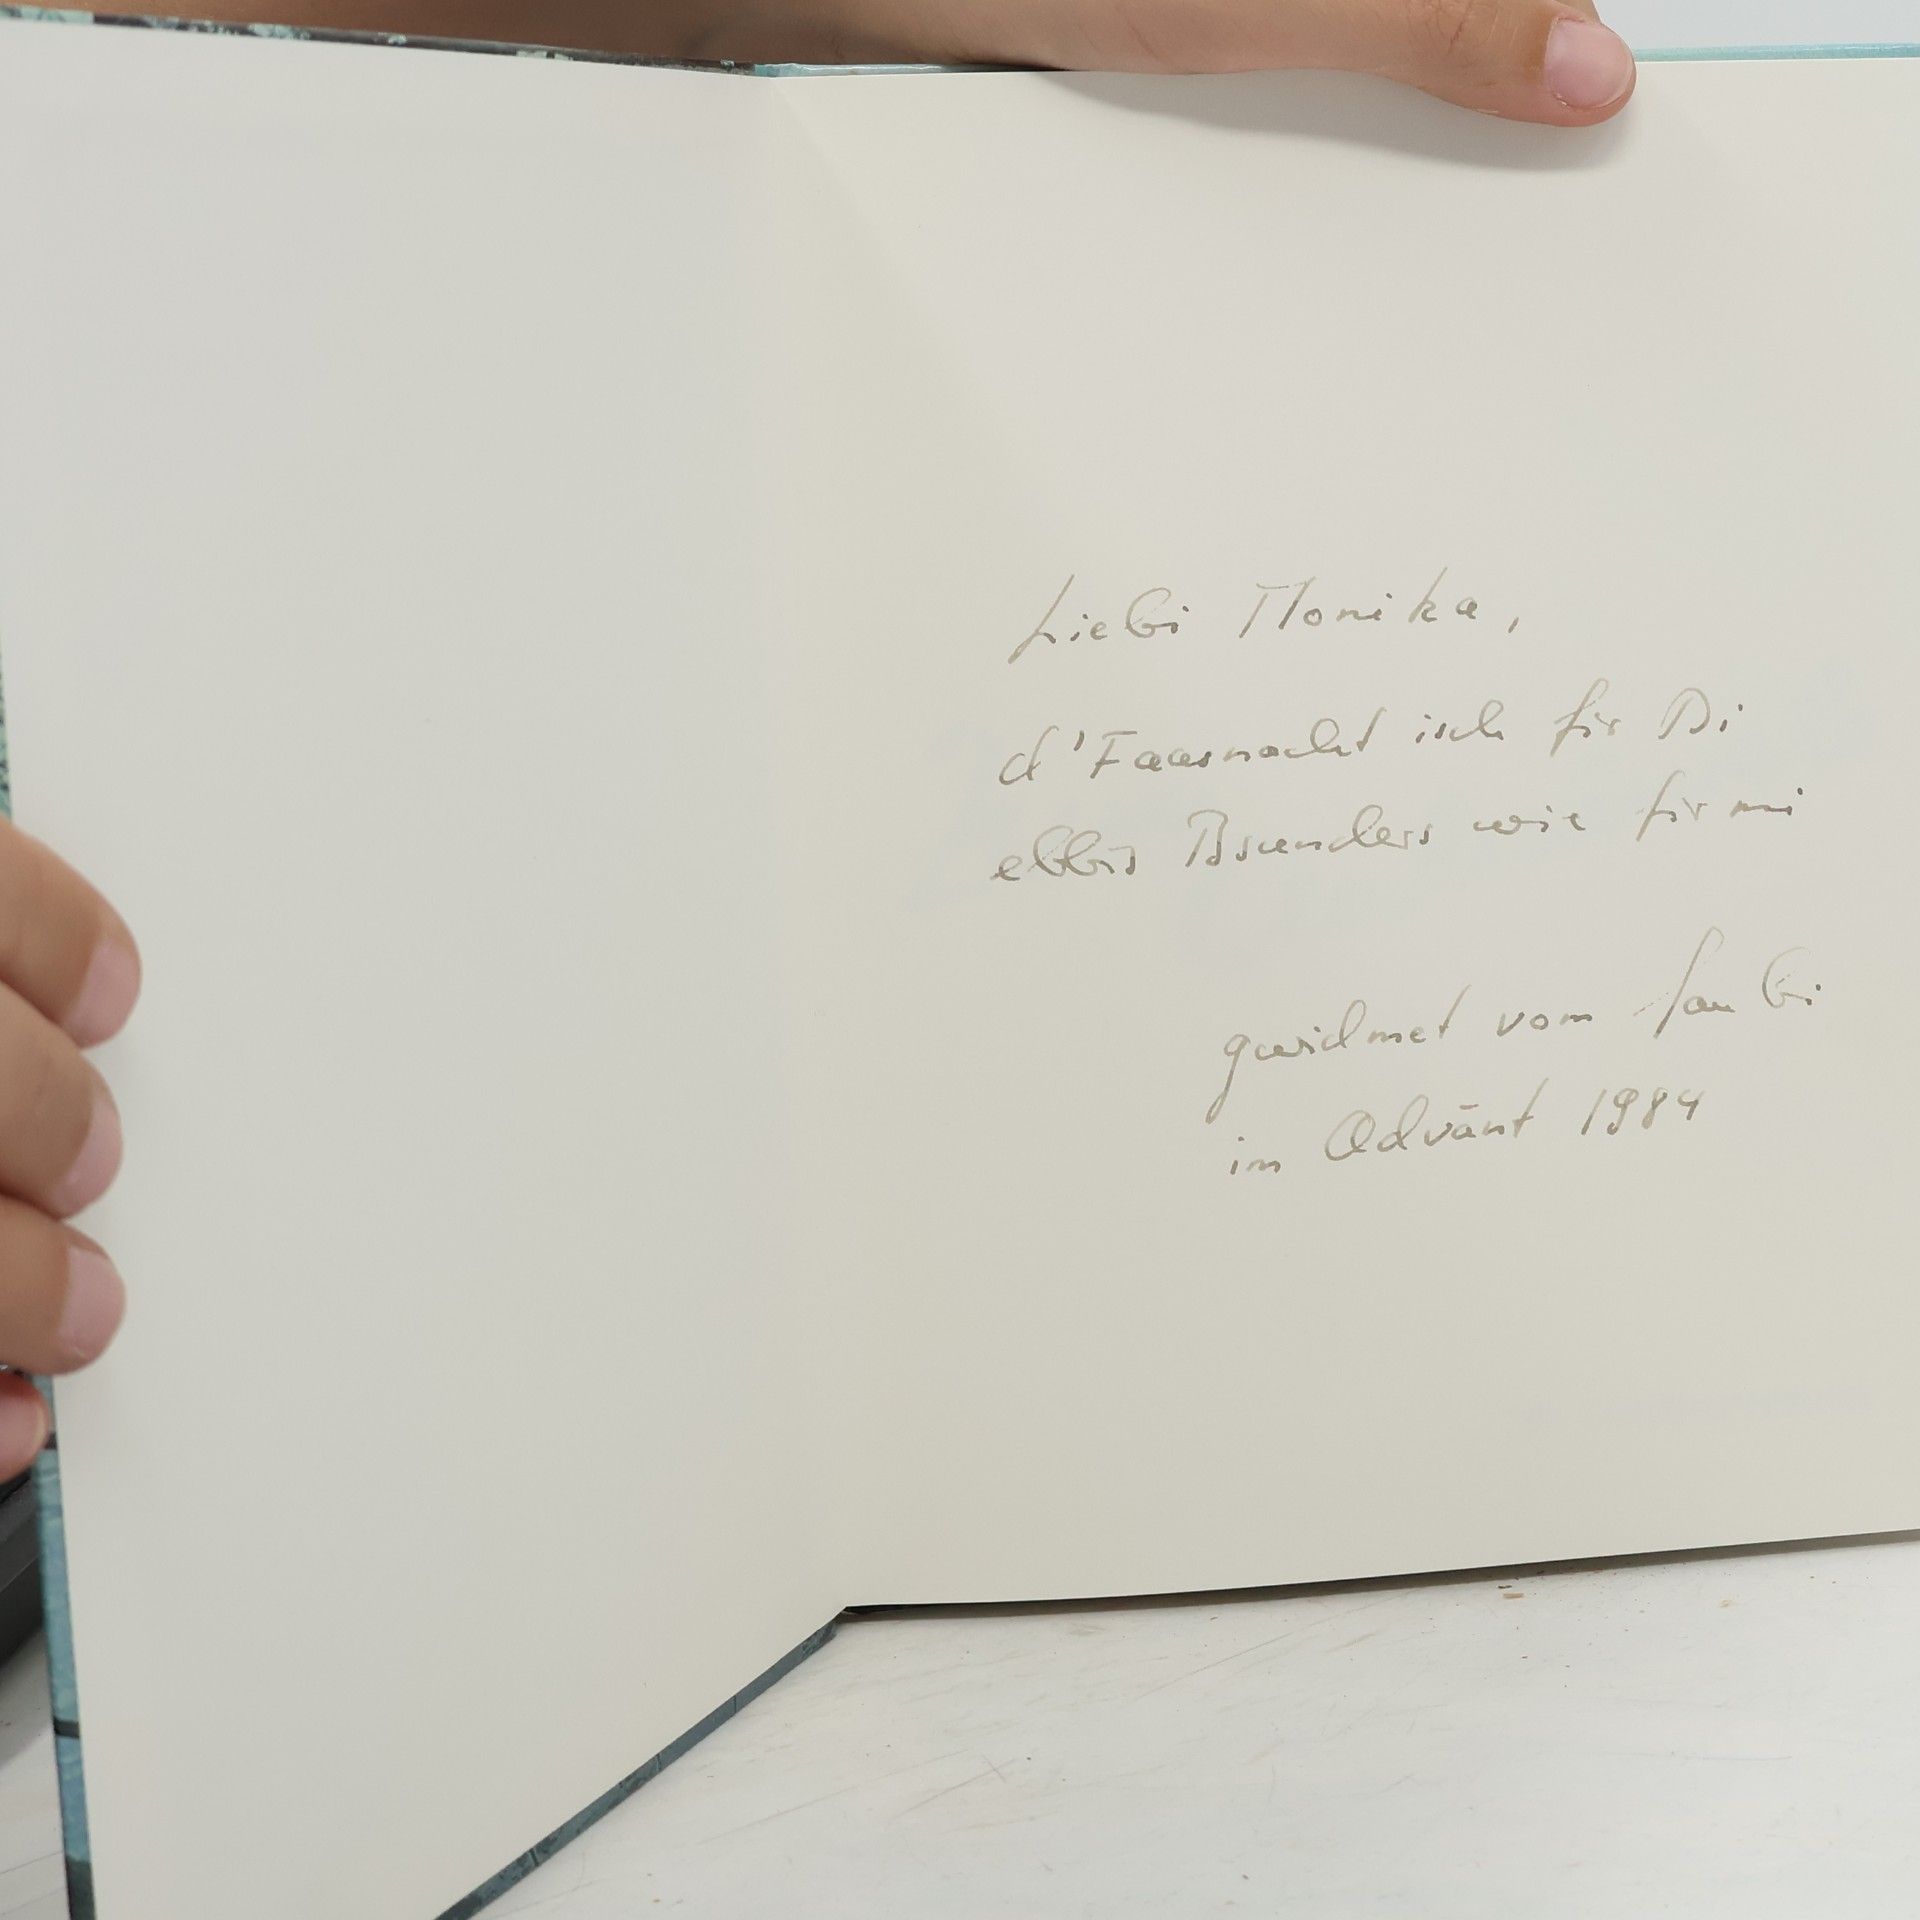 Liebi Monika,
d'Faasnacht isch fir Di
ebbis Bsunders wie fir mi
gwidmet vom
im Advänt 1984